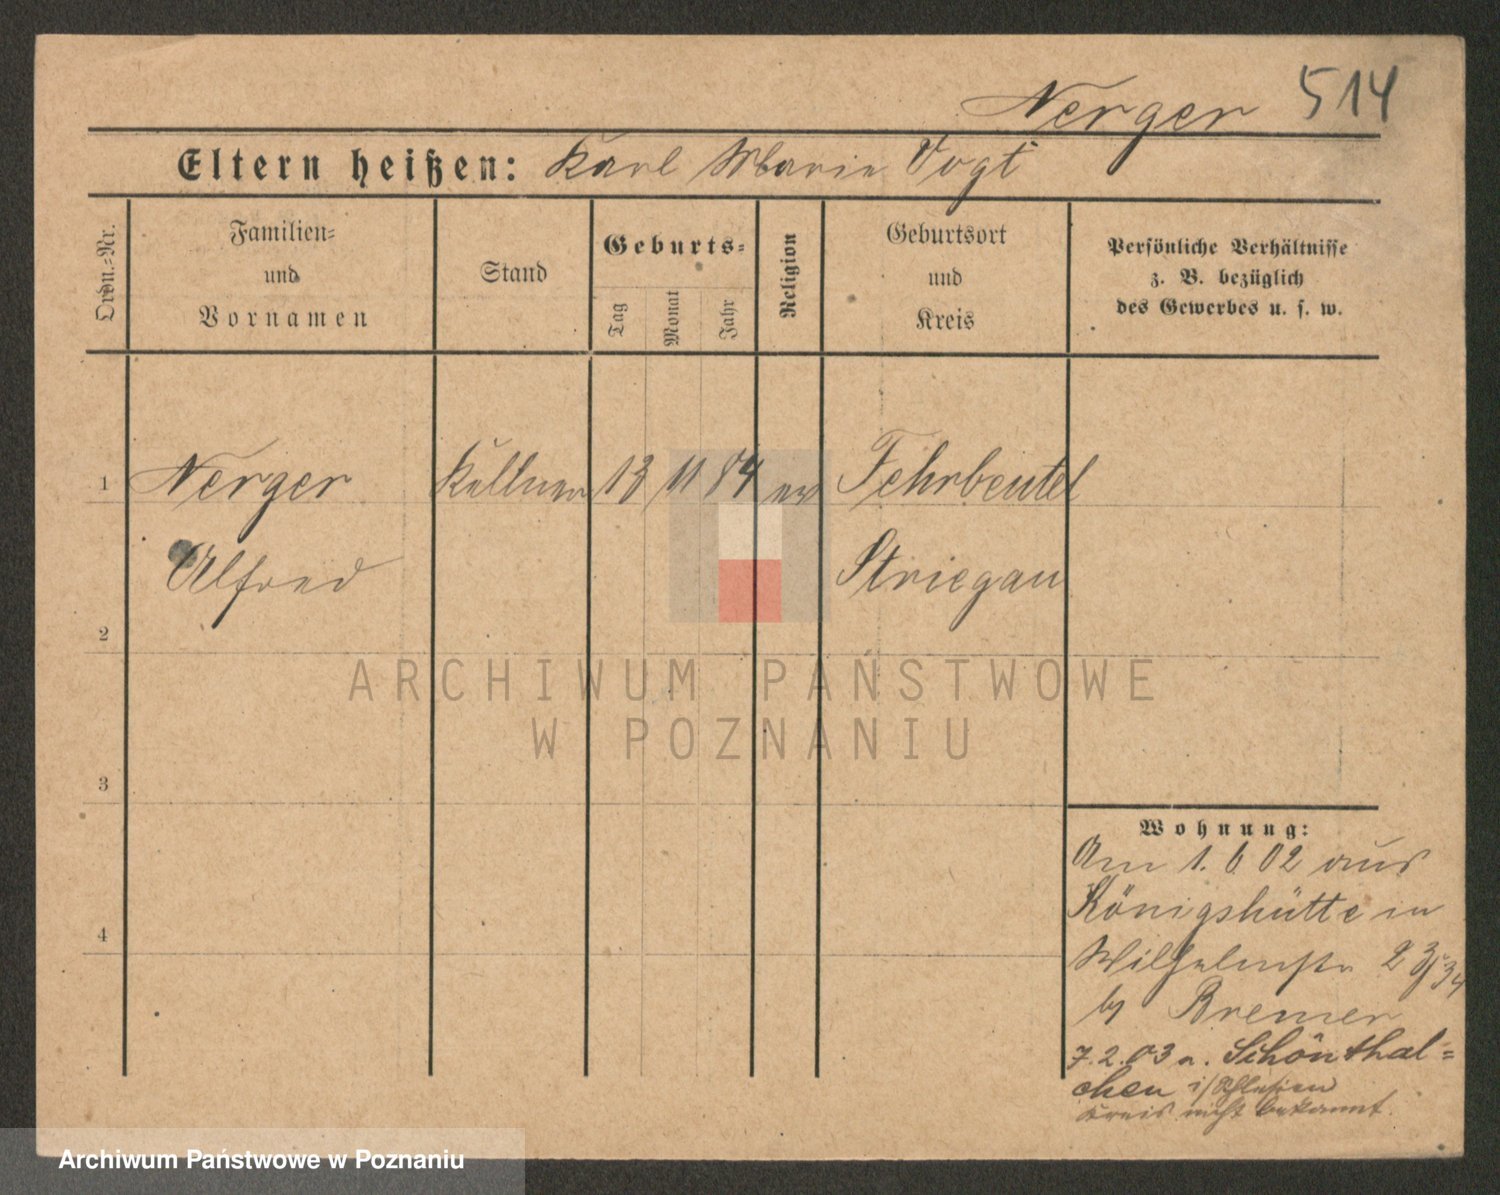 Nerger 514
Eltern heißen: Karl Marie Vogt
Ordn.-Nr.
Familien-
und
Vornamen
Stand
Geburts-
Tag
Monat
Jahr
Religion
Geburtsort
und
Kreis
Persönliche Verhältnisse
z. B. bezüglich
des Gewerbes u. s. w.
1 Nerger Kellner 13 11 84 ev Fehrbeutel
Alfred Striegau
2
3
4
Wohnung:
Am 1. 6 02 aus
Königshütte in
Wilhelmstr 23
by Bremer
7.2.03 n. Schönthal-
chen i/Schlesien
Kreis nicht bekannt.
ARCHIWUM PAŃSTWOWE
W POZNANIU
Archiwum Państwowe w Poznaniu